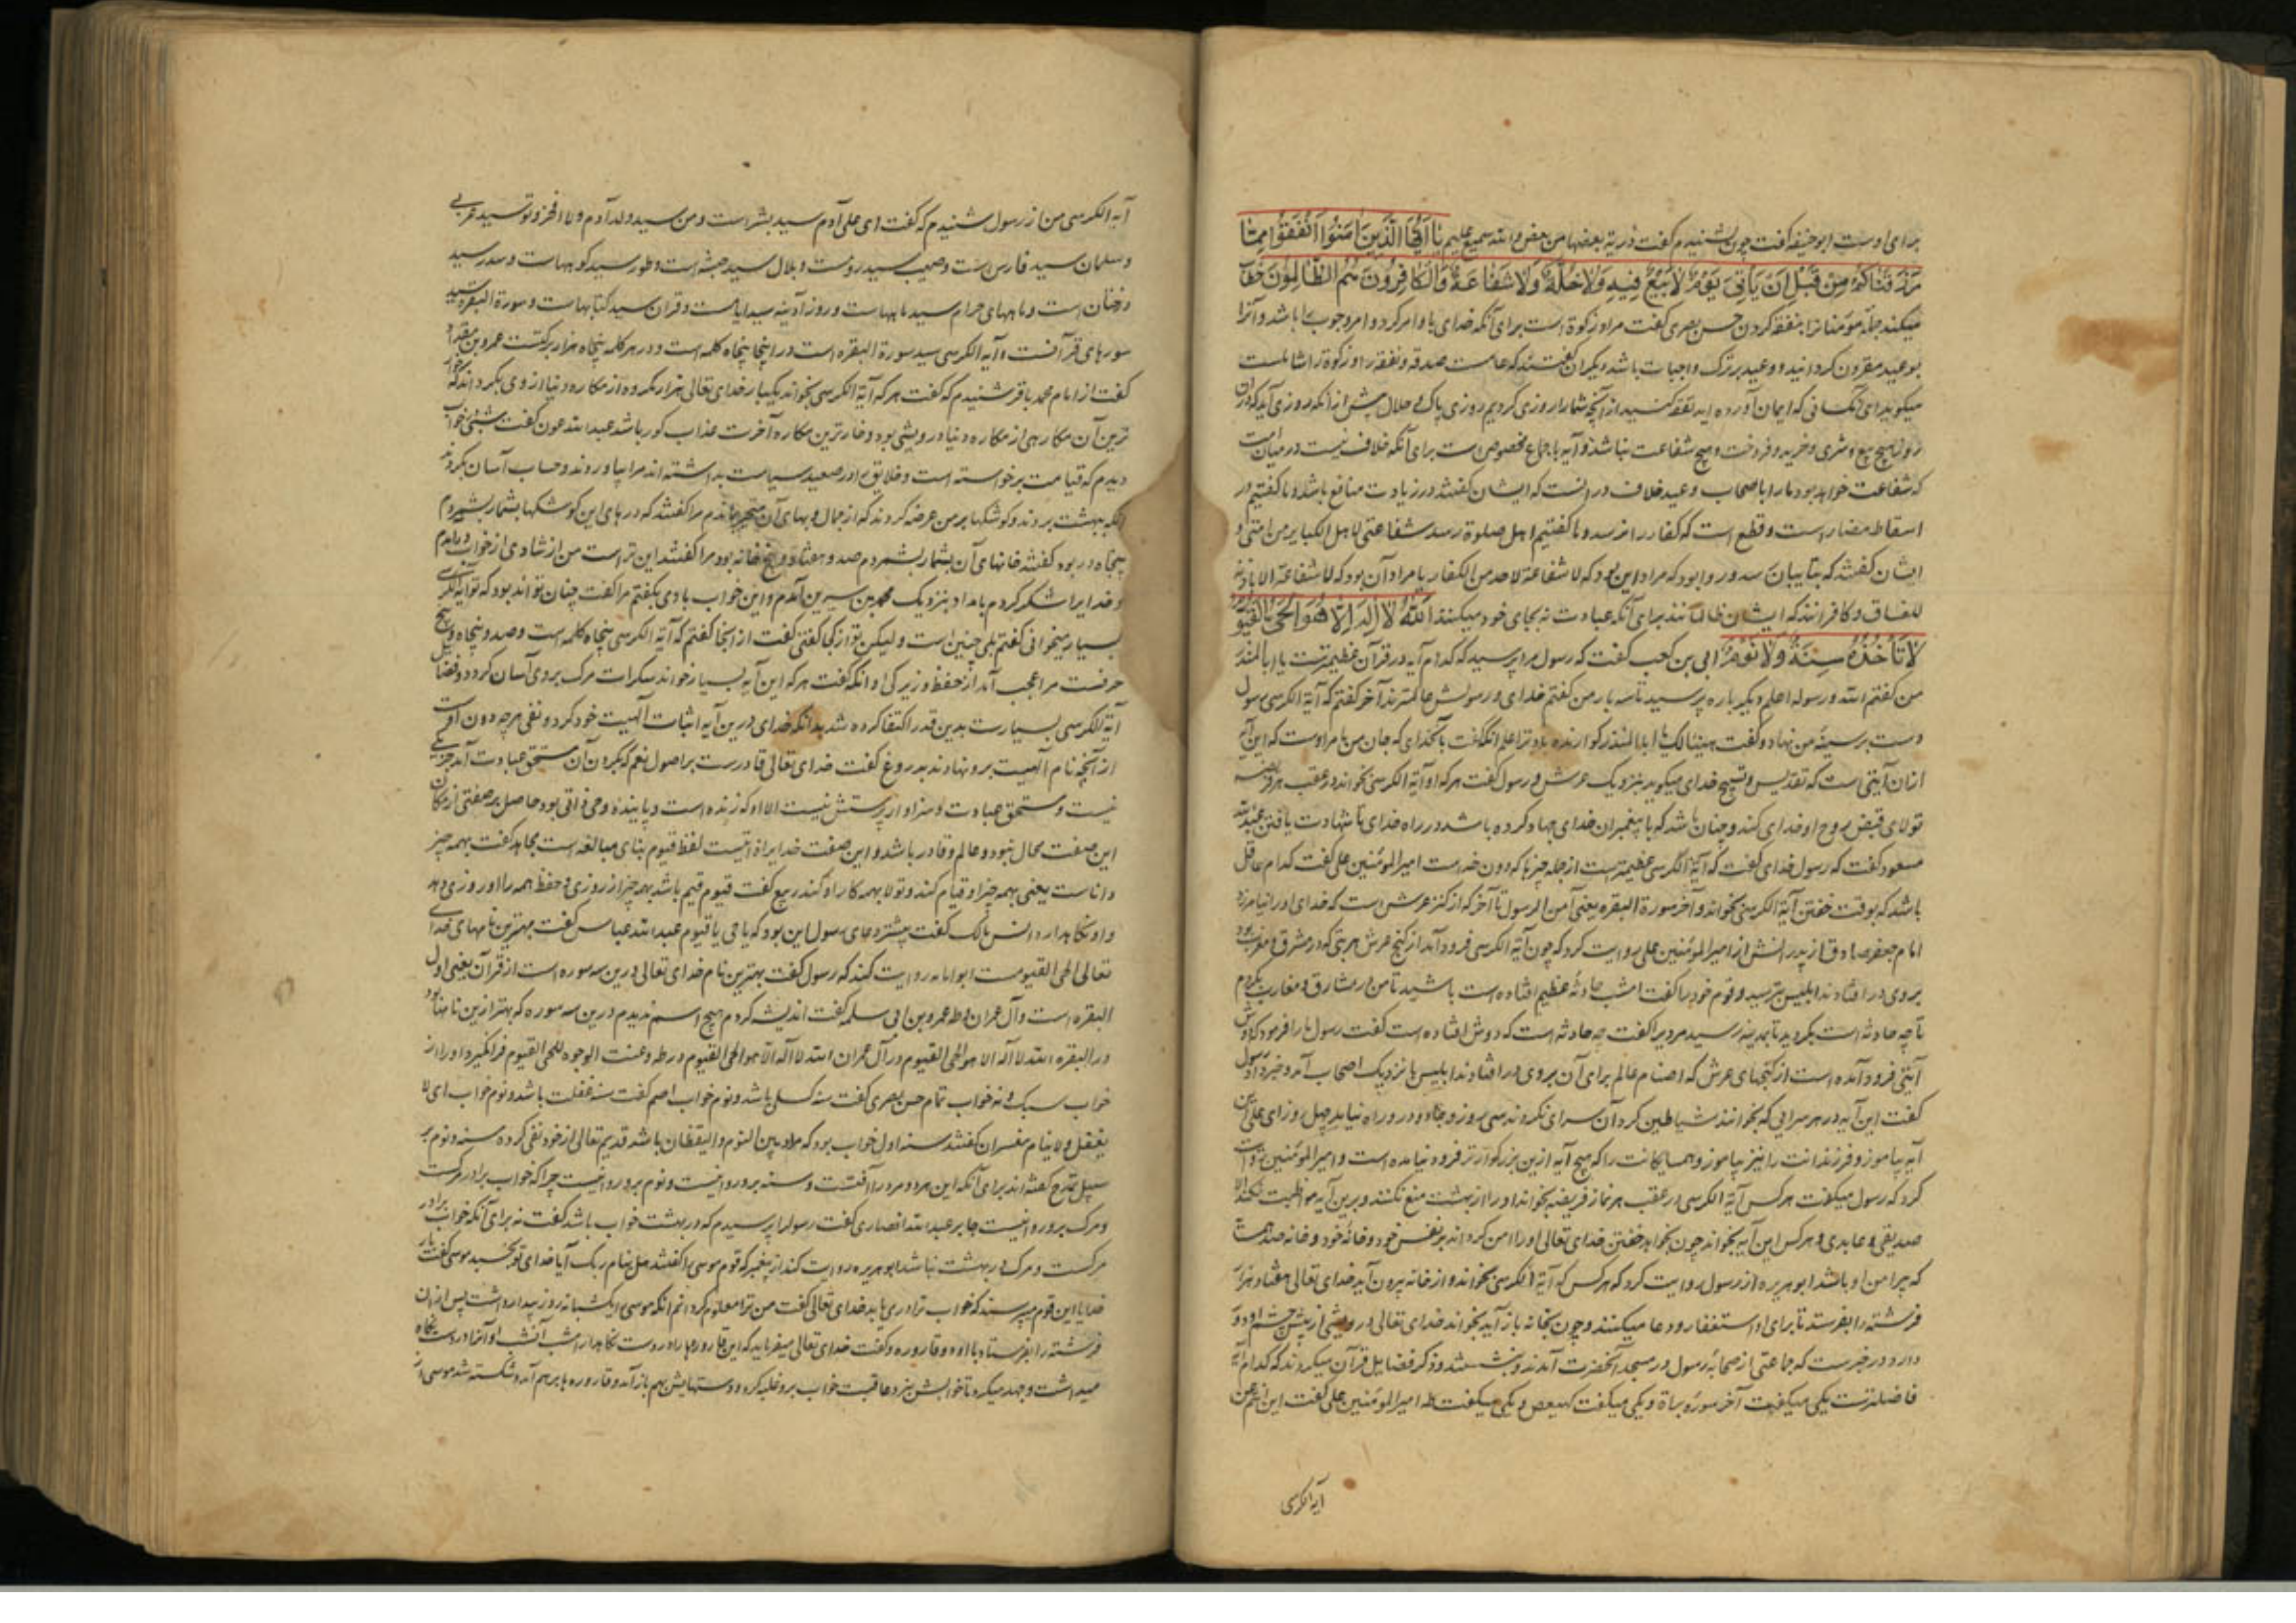 برای اوست ابوحنیفه گفت چون بشنیدم گفت ذریة بعضها من بعض والله سمیع علیم یا ایها الذین امنوا انفقوا مما
رزقناکم من قبل ان یاتی یوم لا بیع فیه ولا خلة ولا شفاعة والکافرون هم الظالمون
میکند جمله مؤمنانرا بنفقه کردن حسن بصری گفت مراد زکوة است برای آنکه خدای با او امر کرد و امر وجوب را باشد و آنرا
بوعید مقرون کردانید و وعید بر ترک واجبات باشد دیکران گفتند که عامست صدقه و نفقه را و زکوة را شاملست
میکوید ای کسانی که ایمان آورده اید نفقه کنید از آنچه شما را روزی کردیم روزی پاک و حلال پیش از آنکه روزی آید که دران
روز هیچ بیع و شری و خرید و فروخت و هیچ شفاعت نباشد و آیه باجماع مخصوص است برای آنکه خلاف نیست در میان امت
که شفاعت خواهد بود ما را با اصحاب وعید خلاف در انست که ایشان گفتند در زیادت منافع باشد و ما گفتیم در
اسقاط مضار است و قطع است که کفار را نرسد و ما گفتیم اهل صلوة رسد شفاعتی لاهل الکبایر من امتی و
ایشان گفتند که بتایبان رسد و روا بود که مراد این بود که لا شفاعة لاحد من الکفار یا مراد آن بود که لا شفاعة الا باذنه
و کافرانند که ایشان ظالمانند برای آنکه عبادت نه بجای خود میکنند الله لا اله الا هو الحی القیوم
لا تاخذه سنة ولا نوم ابی بن کعب گفت که رسول مرا پرسید که کدام آیه در قرآن عظیم‌ترست یا ابا المنذر
من گفتم الله و رسوله اعلم دیکر باره پرسید تا سه بار من گفتم خدای و رسولش عالمترند آخر گفتم که آیة الکرسی رسول
دست بر سینهٔ من نهاد و گفت هنیئا لک یا ابا المنذر کوارنده باد ترا علم آنکه گفت بآن خدای که جان من بامر اوست که این آیه
از ان آیتی است که تقدیس و تسبیح خدای میکوید بنزدیک عرش و رسول گفت هر که او آیة الکرسی بخواند در عقب هر فریضه
تولای قبض روح او خدای کند و چنان باشد که با پیغمبران خدای جهاد کرده باشد در راه خدای تا شهادت یافتن عبدالله
مسعود گفت که رسول خدای گفت که آیة الکرسی عظیمترست از جمله چیزها که دون خداست امیرالمؤمنین علی گفت کدام عاقل
باشد که بوقت خفتن آیة الکرسی نخواند و آخر سورة البقره یعنی آمن الرسول تا آخر که از کنز عرش است که خدای او را نیامرزد
امام جعفر صادق از پدرانش از امیرالمؤمنین علی روایت کرد که چون آیة الکرسی فرود آمد از کنج عرش هر بتی که در مشرق و مغرب بود
بروی در افتادند ابلیس بترسید و قوم خود را گفت امشب حادثهٔ عظیم افتاده است باشید تا من در مشارق و مغارب بکردم
تا چه حادثه است بکردید تا بمدینه رسید مردیرا گفت چه حادثه است که دوش افتاده است گفت رسول ما را فرمود که دوش
آیتی فرود آمده است از کنجهای عرش که اصنام عالم برای آن بروی در افتادند ابلیس با نزدیک اصحاب آمد و خبر داد رسول
گفت این آیه در هر سرایی که بخوانند شیاطین کرد آن سرای نکردند سی روز و جادو در و راه نیابد چهل روز ای علی این
آیه بیاموز و فرزندانت را نیز بیاموز و همسایکانت را که هیچ آیه ازین بزرکوارتر فرود نیامده است و امیرالمؤمنین روایت
کرد که رسول میگفت هر کس آیة الکرسی در عقب هر نماز فریضه بخواند او را از بهشت منع نکنند و برین آیه مواظبت نکند الا
صدیقی و عابدی و هر کس این آیه بخواند چون بخواهد خفتن خدای تعالی او را امن کرداند بر نفس خود و خانهٔ خود و خانه
که پیرامن او باشد ابوهریره از رسول روایت کرد که هر کس که آیة الکرسی بخواند و از خانه بیرون آید خدای تعالی هفتاد هزار
فرشته را بفرستد تا برای او استغفار و دعا میکنند و چون بخانه باز آید بخواند خدای تعالی درویشی از پیش چشم او دور
دارد و در خبرست که جماعتی از صحابهٔ رسول در مسجد آنحضرت آمدند و بنشستند و ذکر فضایل قرآن میکردند که کدام آیه
فاضلترست یکی میگفت آخر سوره براة و یکی میگفت کهیعص و یکی میگفت طه امیرالمؤمنین علی گفت این انتم من
آیة الکرسی
آیة الکرسی من از رسول شنیدم که گفت ای علی آدم سید بشر است و من سید ولد آدم و لا فخر و تو سید عربی
و سلمان سید فارس است و صهیب سید روم است و بلال سید حبشه است و طور سید کوههاست و سدر سید
درختان است و ماههای حرام سید ماههاست و روز آدینه سید ایامست و قرآن سید کتابهاست و سورة البقره سید
سورهای قرآنست و آیة الکرسی سید سورة البقره است در اینجا پنجاه کلمه است و در هر کلمه پنجاه هزار برکتست عمرو بن مقدام
گفت از امام محمد باقر شنیدم که گفت هر که آیة الکرسی بخواند یکبار خدای تعالی هزار مکروه از مکاره دنیا از وی بکرداند که خوار
ترین آن مکارهی از مکاره دنیا درویشی بود و خارترین مکاره آخرت عذاب کور باشد عبدالله عون گفت شبی بخواب
دیدم که قیامت برخواسته است و خلایق را در صعید سیاست بداشته اند مرا بیاوردند و حساب آسان بکردند
آنکه ببهشت بردند و کوشکها بر من عرضه کردند که از جمال و بهای آن متحیر بماندم مرا گفتند که درهای این کوشکها بشمار بشمردم
پنجاه در بود گفتند خانهای آن بشمار بشمردم صد و هفتاد و پنج خانه بود مرا گفتند این تراست من از شادی از خواب در آمدم
و خدایرا شکر کردم بامداد بنزدیک محمد بن سیرین آمدم و این خواب با وی بگفتم مرا گفت چنان تواند بود که تو آیة الکرسی
بسیار میخوانی گفتم بلی چنین است و لیکن تو از کجا گفتی گفت از اینجا گفتم که آیة الکرسی پنجاه کلمه است و صد و پنجاه و پنج
حرفست مرا عجب آمد از حفظ و زیرکی او آنکه گفت هر که این آیه بسیار خواند سکرات مرک بروی آسان کردد و فضایل
آیة الکرسی بسیارست بدین قدر اکتفا کرده شد بدانکه خدای درین آیه اثبات آلهیت خود کرد و نفی هر چه دون اوست
از آنچه نام آلهیت برو نهادند بدروغ گفت خدای تعالی قادرست بر اصول نعم که بکردن آن مستحق عبادت آمد جز وی
نیست و مستحق عبادت و سزاوار پرستش نیست الا او که زنده است و پاینده و حی ذاتی بود حاصل بر صفتی از مکان
این صفت محال نبود و عالم و قادر باشد و این صفت خدایرا ذاتیست لفظ قیوم بنای مبالغه است مجاهد گفت بهمه چیز
داناست یعنی بهمه چیز او قیام کند و تولا بهمه کار او کند ربیع گفت قیوم قیم باشد بهمه چیز از روزی و حفظ همه را او روزی دهد
و او نکاه دارد انس مالک گفت بیشتر دعای رسول این بود که یا حی یا قیوم عبدالله عباس گفت بهترین نامهای خدای
تعالی الحی القیومست ابوامامه روایت کند که رسول گفت بهترین نام خدای تعالی درین سه سوره است از قرآن یعنی اول
البقره است و آل عمران و طه عمرو بن ابی سلمه گفت اندیشه کردم هیچ اسم ندیدم درین سه سوره که بهتر ازین نامها بود
در البقره الله لا اله الا هو الحی القیوم و در آل عمران الله لا اله الا هو الحی القیوم و در طه و عنت الوجوه للحی القیوم فرانکیرد او را از
خواب سبک و نه خواب تمام حسن بصری گفت سنه کسلی باشد و نوم خواب اصم گفت سنه غفلت باشد و نوم خواب ای لا
یغفل ولا ینام مفسران گفتند سنه اول خواب بود که مراد بین النوم والیقظان باشد قدیم تعالی از خود نفی کرده سنه و نوم بر
سبیل تمدح گفته اند برای آنکه این هر دو مرد را آفتست و سنه برو روا نیست و نوم برو روا نیست چرا که خواب برادر مرکست
و مرک برو روا نیست جابر عبدالله انصاری گفت رسولرا پرسیدم که در بهشت خواب باشد گفت نه برای آنکه خواب برادر
مرکست و مرک در بهشت نباشد ابوهریره روایت کند از پیغمبر که قوم موسی را گفتند هل ینام ربک آیا خدای تو بخسبد موسی گفت بار
خدایا این قوم میپرسند که خواب ترا دریابد خدای تعالی گفت من ترا معلوم کردانم آنکه موسی را یکشبانه روز بیدار داشت پس از ان
فرشته را بفرستاد با او دو قاروره و گفت خدای تعالی میفرماید که این قاروره را در دست نکاه دار امشب آنشب او آنرا در دست نکاه
میداشت و جهد میکرد تا خوابش نبرد عاقبت خواب برو غلبه کرد و دستهایش بهم باز آمد و قارورها بر هم آمد و شکسته شد موسی از